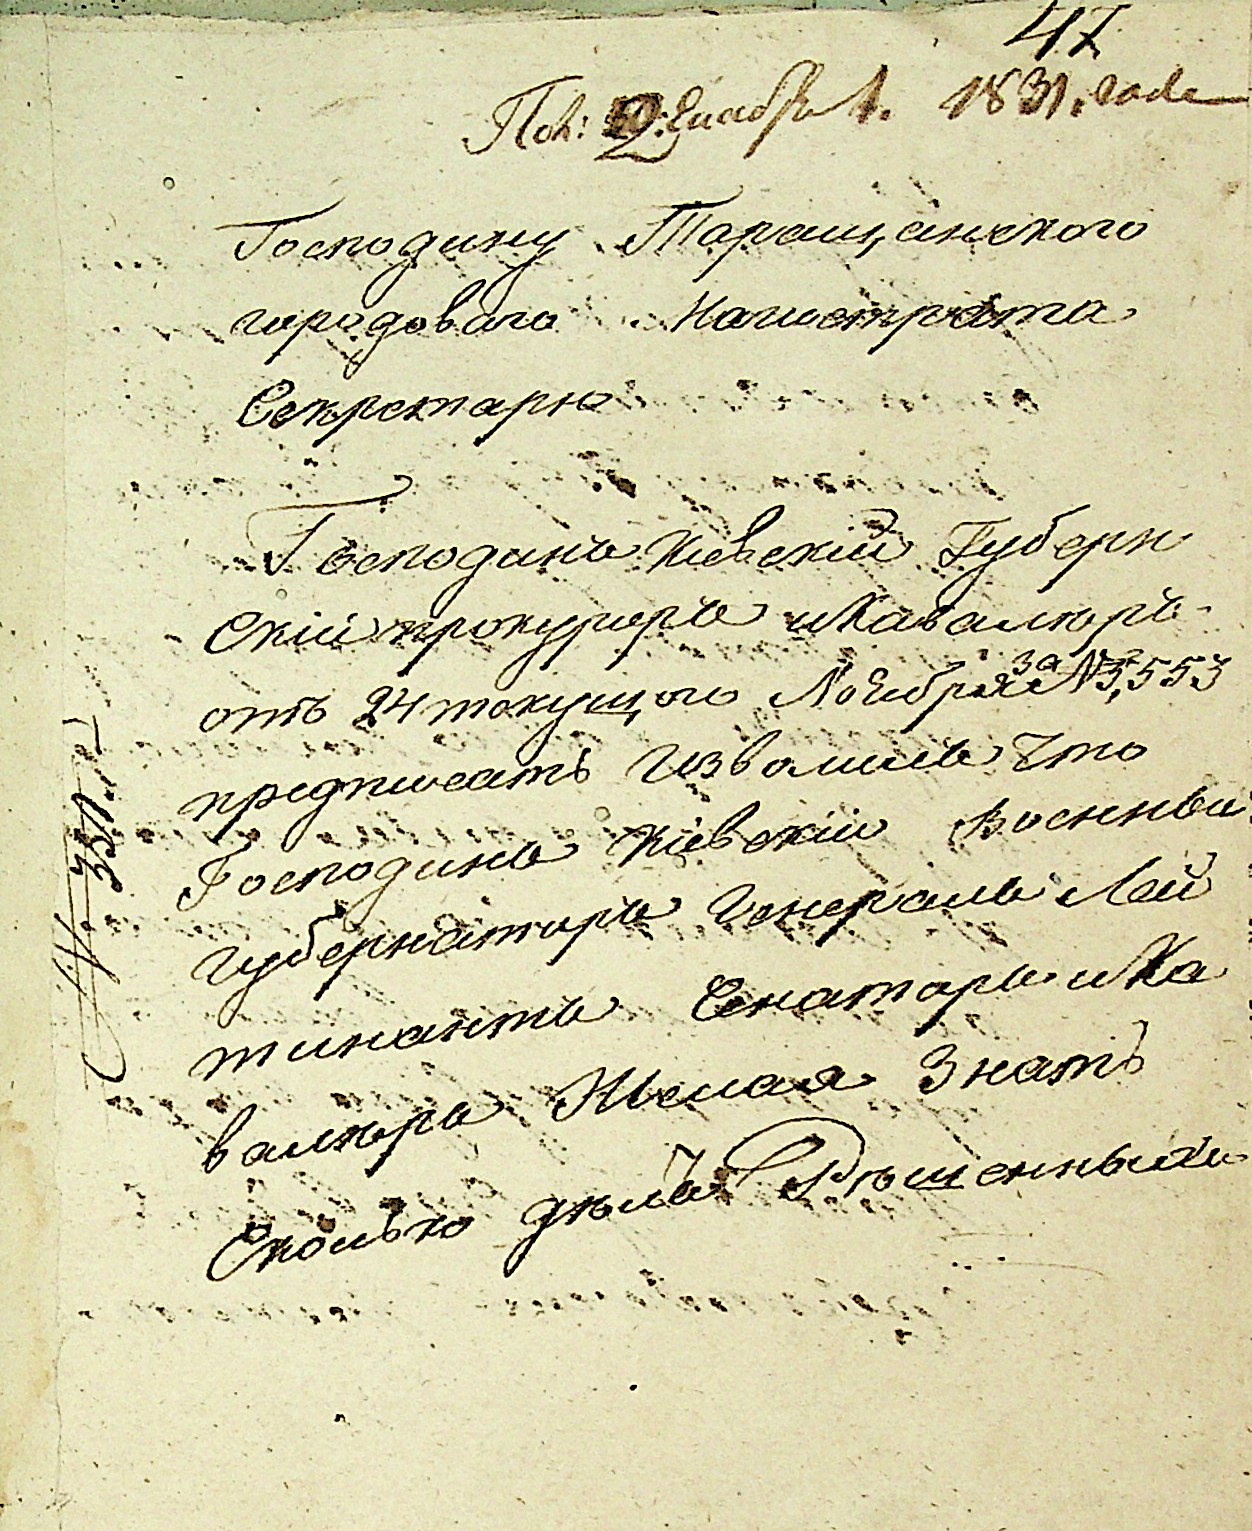 47
Пол: Декабря 1. 1831. года
Господину Таращанского
городоваго Магистрата
Секретарю
Господинъ Киевскій Губерн
Скій прокуроръ иКавалеръ
отъ 24 токущого Ноября за № 3,553
предписать изволилъ что
Господинъ Кіевскій Военный
губернаторъ Генералъ Лей
тинантъ Сенаторъ иКа
валеръ Желая Знать
Сколько дѣлъ Рѣшенныхъ